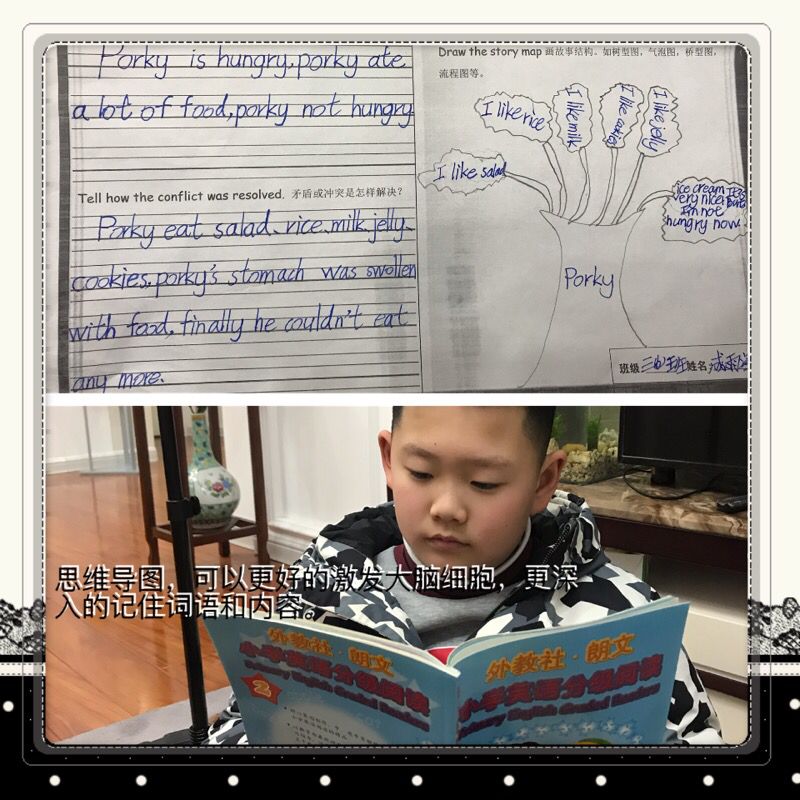 Porky is hungry. porky ate
a lot of food, porky not hungry
Tell how the conflict was resolved. 矛盾或冲突是怎样解决？
Porky eat salad、rice、milk、jelly、
cookies. porky's stomach was swollen
with food, finally he couldn't eat
any more.
Draw the story map 画故事结构。如树型图，气泡图，桥型图，
流程图等。
I like salad
I like rice
I like milk
I like cookies
I like jelly
ice cream It's
very nice. But
I'm not
hungry now
Porky
班级 姓名
思维导图，可以更好的激发大脑细胞，更深
入的记住词语和内容。
外教社·朗文
小学英语分级阅读
Primary English Graded Readers
2
外教社·朗文
小学英语分级阅读
Primary English Graded Readers